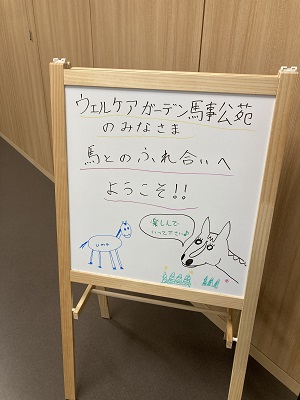 ウェルケアガーデン馬事公苑
のみなさま
馬とのふれ合いへ
ようこそ!!
楽しんで
いって下さい♪
uma